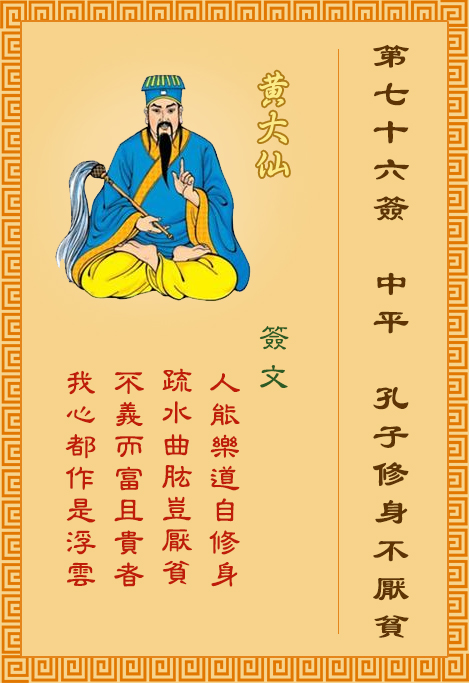 第七十六簽 中平 孔子修身不厭貧
黃大仙
簽文
人能樂道自修身
疏水曲肱豈厭貧
不義而富且貴者
我心都作是浮雲